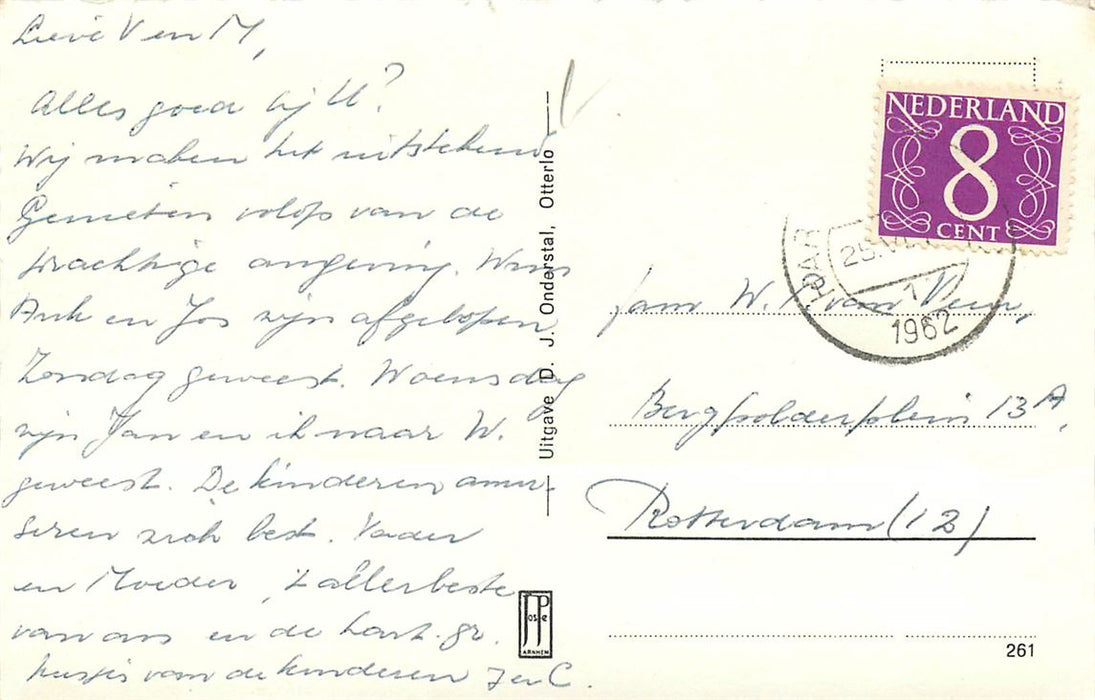 Lieve V en M,
Alles goed bij U?
Wij maken het uitstekend
Genieten volop van de
prachtige omgeving. Wim
Ank en Jos zijn afgelopen
Zondag geweest. Woensdag
zijn Jan en ik naar W.
geweest. De kinderen amu-
seren zich best. Vader
en Moeder, 't allerbeste
van ons en de hart. gr.
kusjes van de kinderen J en C.
Uitgave D. J. Onderstal, Otterlo
JosPe
ARNHEM
NEDERLAND
8
CENT
25.VII
1
1962
fam W. van Veen,
Bergpolderplein 13A,
Rotterdam (12)
261